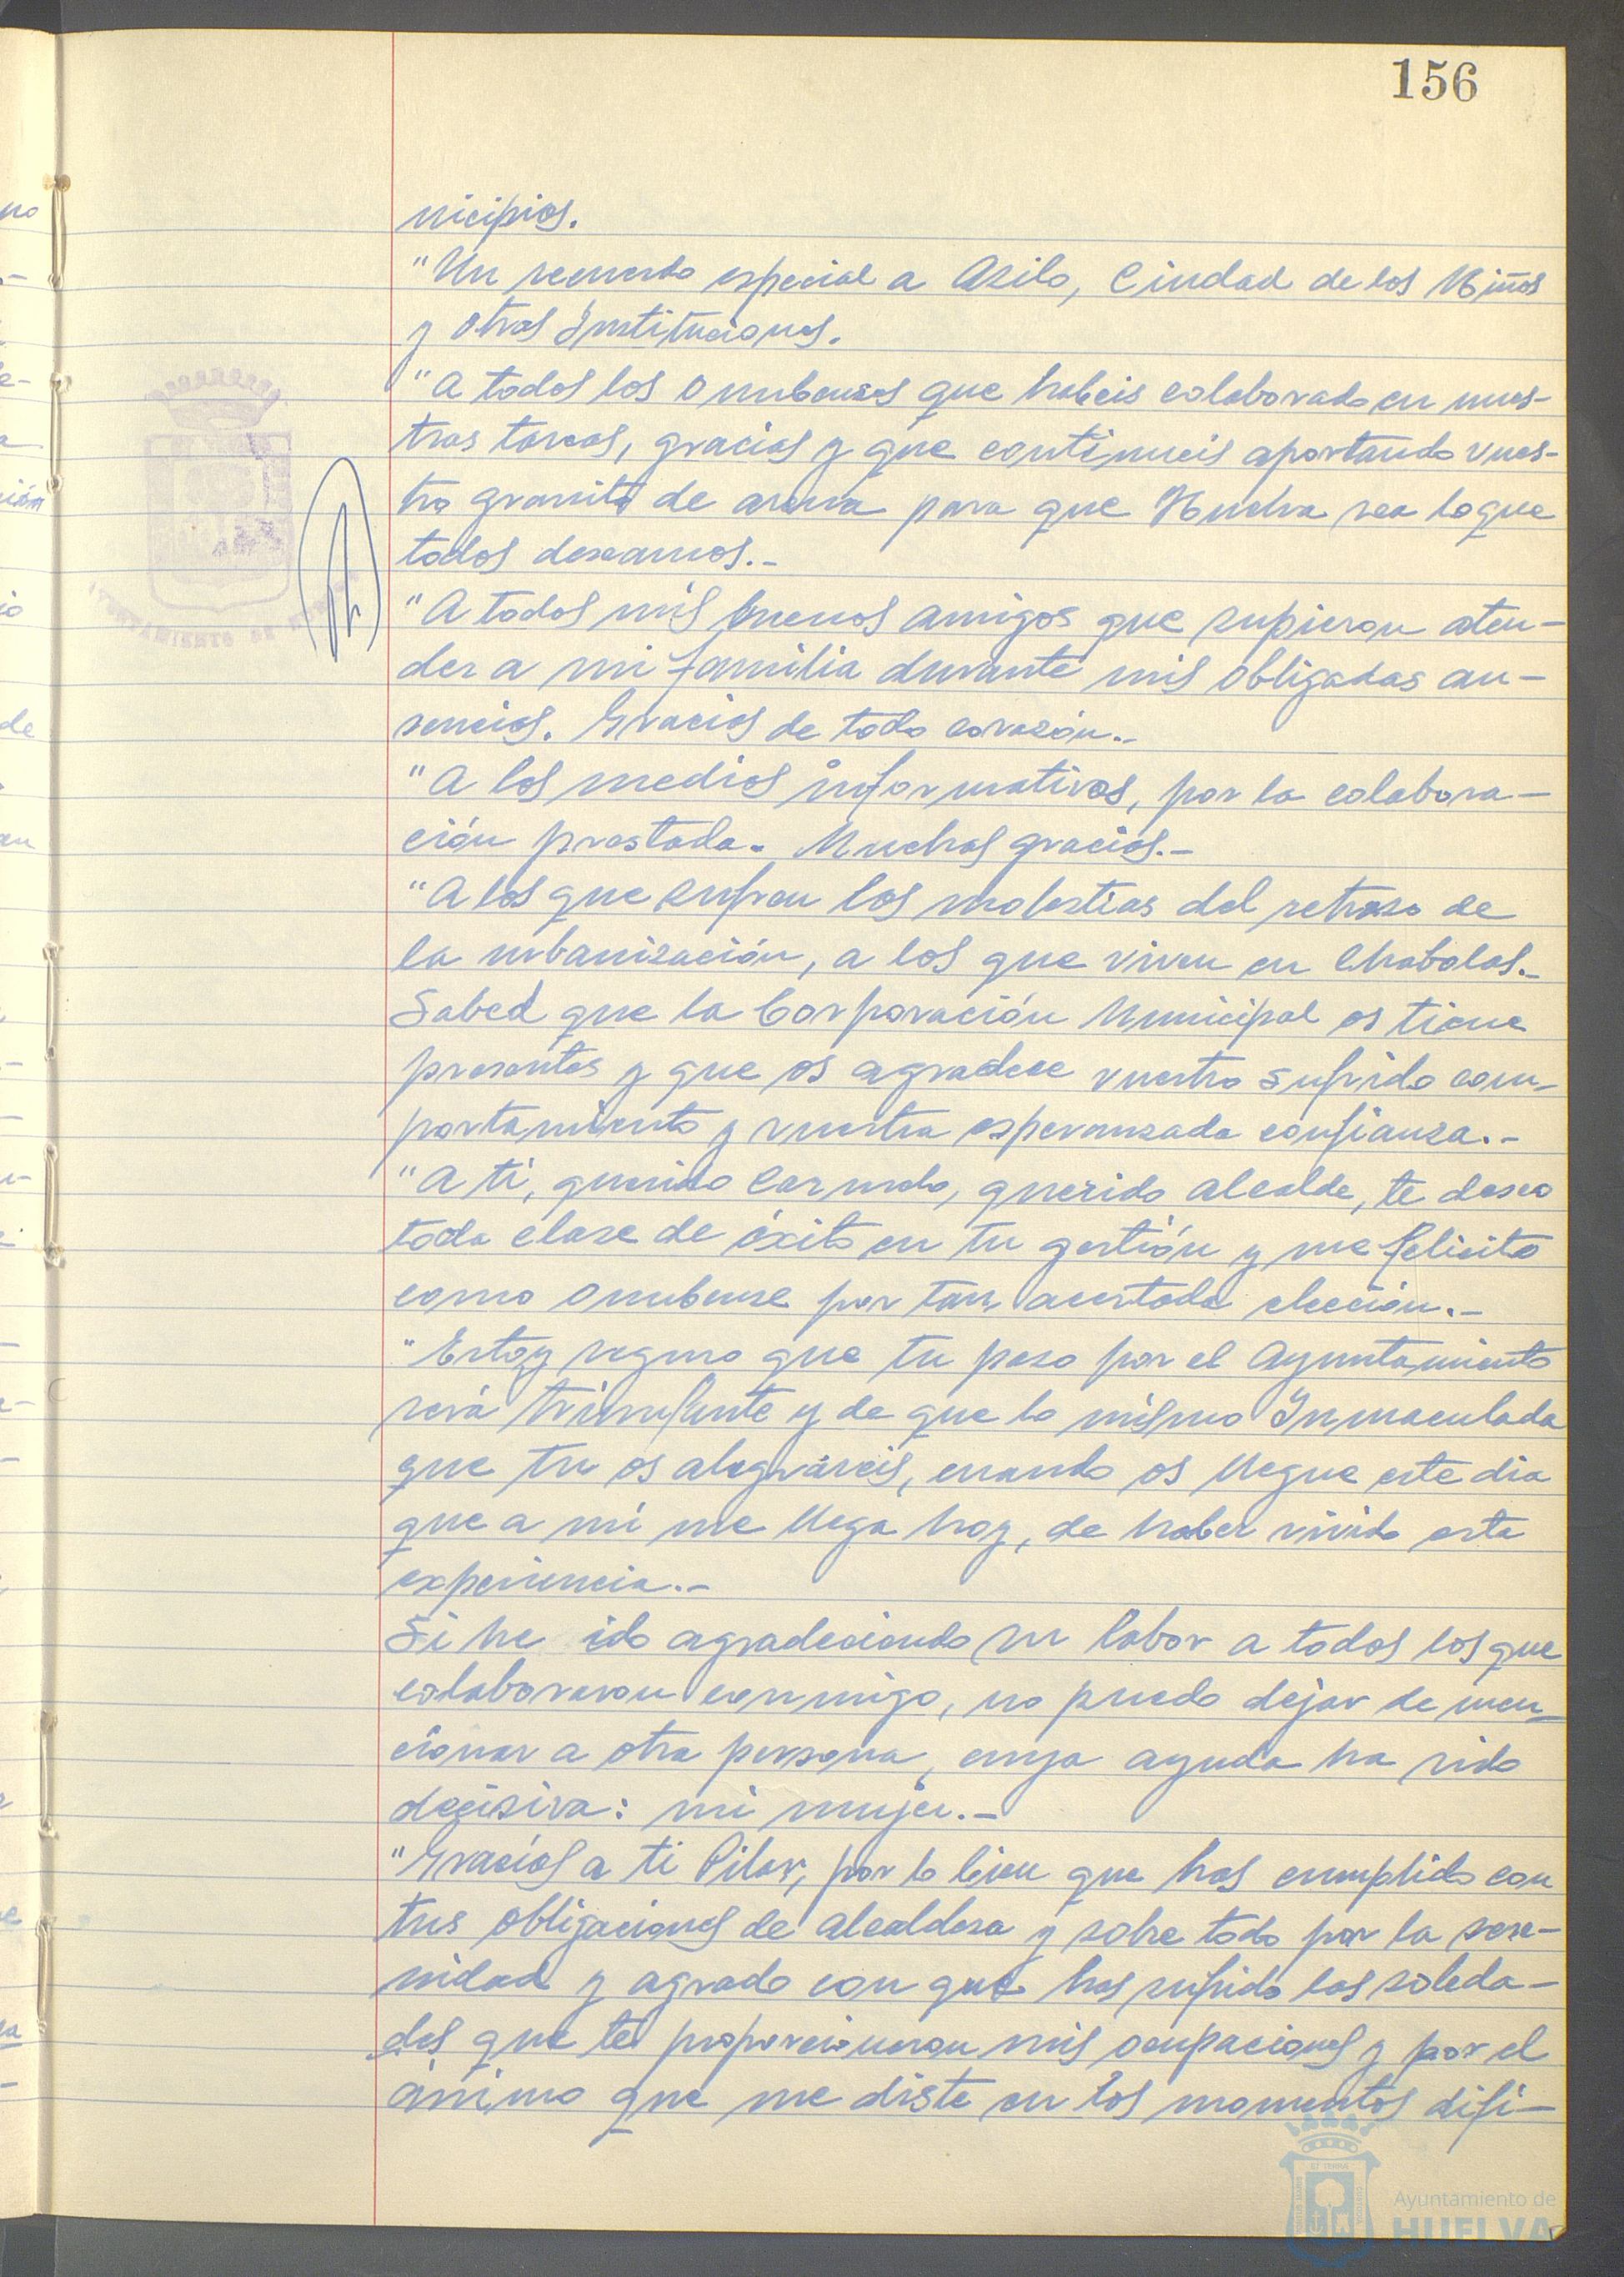 156
nicipios.
"Un recuerdo especial a Asilo, Ciudad de los Niños
y otras Instituciones.
"A todos los onubenses que habeis colaborado en nues-
tras tareas, gracias y que continueis aportando vues-
tro granito de arena para que Huelva sea lo que
todos deseamos.-
"A todos mis buenos amigos que supieron aten-
der a mi familia durante mis obligadas au-
sencias. Gracias de todo corazón.-
"A los medios informativos, por la colabora-
ción prestada. Muchas gracias.-
"A los que sufren las molestias del retraso de
la urbanización, a los que viven en chabolas.-
Sabed que la Corporación Municipal os tiene
presentes y que os agradece vuestro sufrido com-
portamiento y vuestra esperanzada confianza.-
"A ti, querido, querido alcalde, te deseo
toda clase de éxito en tu gestión y me felicito
como onubense por tan acertada elección.-
"Estoy seguro que tu paso por el Ayuntamiento
será triunfante y de que lo mismo Inmaculada
que tu os alegráreis, cuando os llegue este dia
que a mí me llega hoy, de haber vivido esta
experiencia.-
Si he ido agradeciendo su labor a todos los que
colaboraron conmigo, no puedo dejar de men-
cionar a otra persona, cuya ayuda ha sido
decisiva: mi mujer.-
"Gracias a ti Pilar, por lo bien que has cumplido con
tus obligaciones de alcaldesa y sobre todo por la sere-
nidad y agrado con que has sufrido las soleda-
des que te proporcionaron mis ocupaciones y por el
ánimo que me diste en los momentos difi-
AYUNTAMIENTO DE HUELVA
Ayuntamiento de
HUELVA